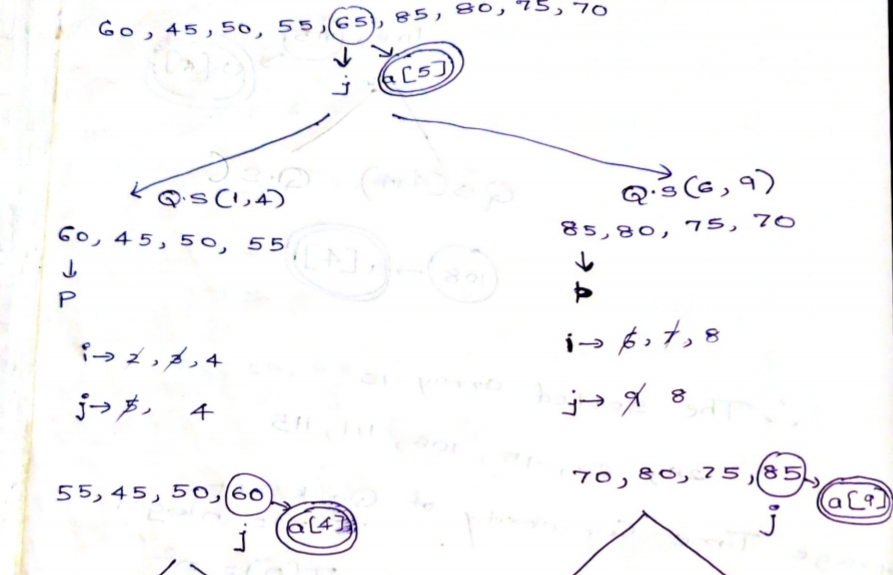 60, 45, 50, 55, 65, 85, 80, 75, 70
j a[5]
Q.S(1,4)
60, 45, 50, 55
P
i→ 2, 3, 4
j→ 5, 4
55, 45, 50, 60
j a[4]
Q.S(6,9)
85, 80, 75, 70
P
i→ 6, 7, 8
j→ 9 8
70, 80, 75, 85
j a[9]